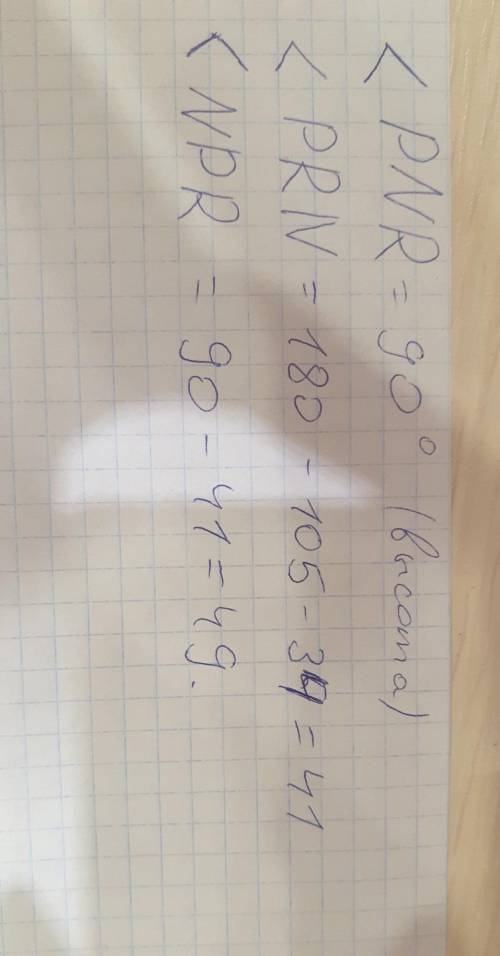 < PNR = 90° (висота)
< PRN = 180 - 105 - 34 = 41
< NPR = 90 - 41 = 49.